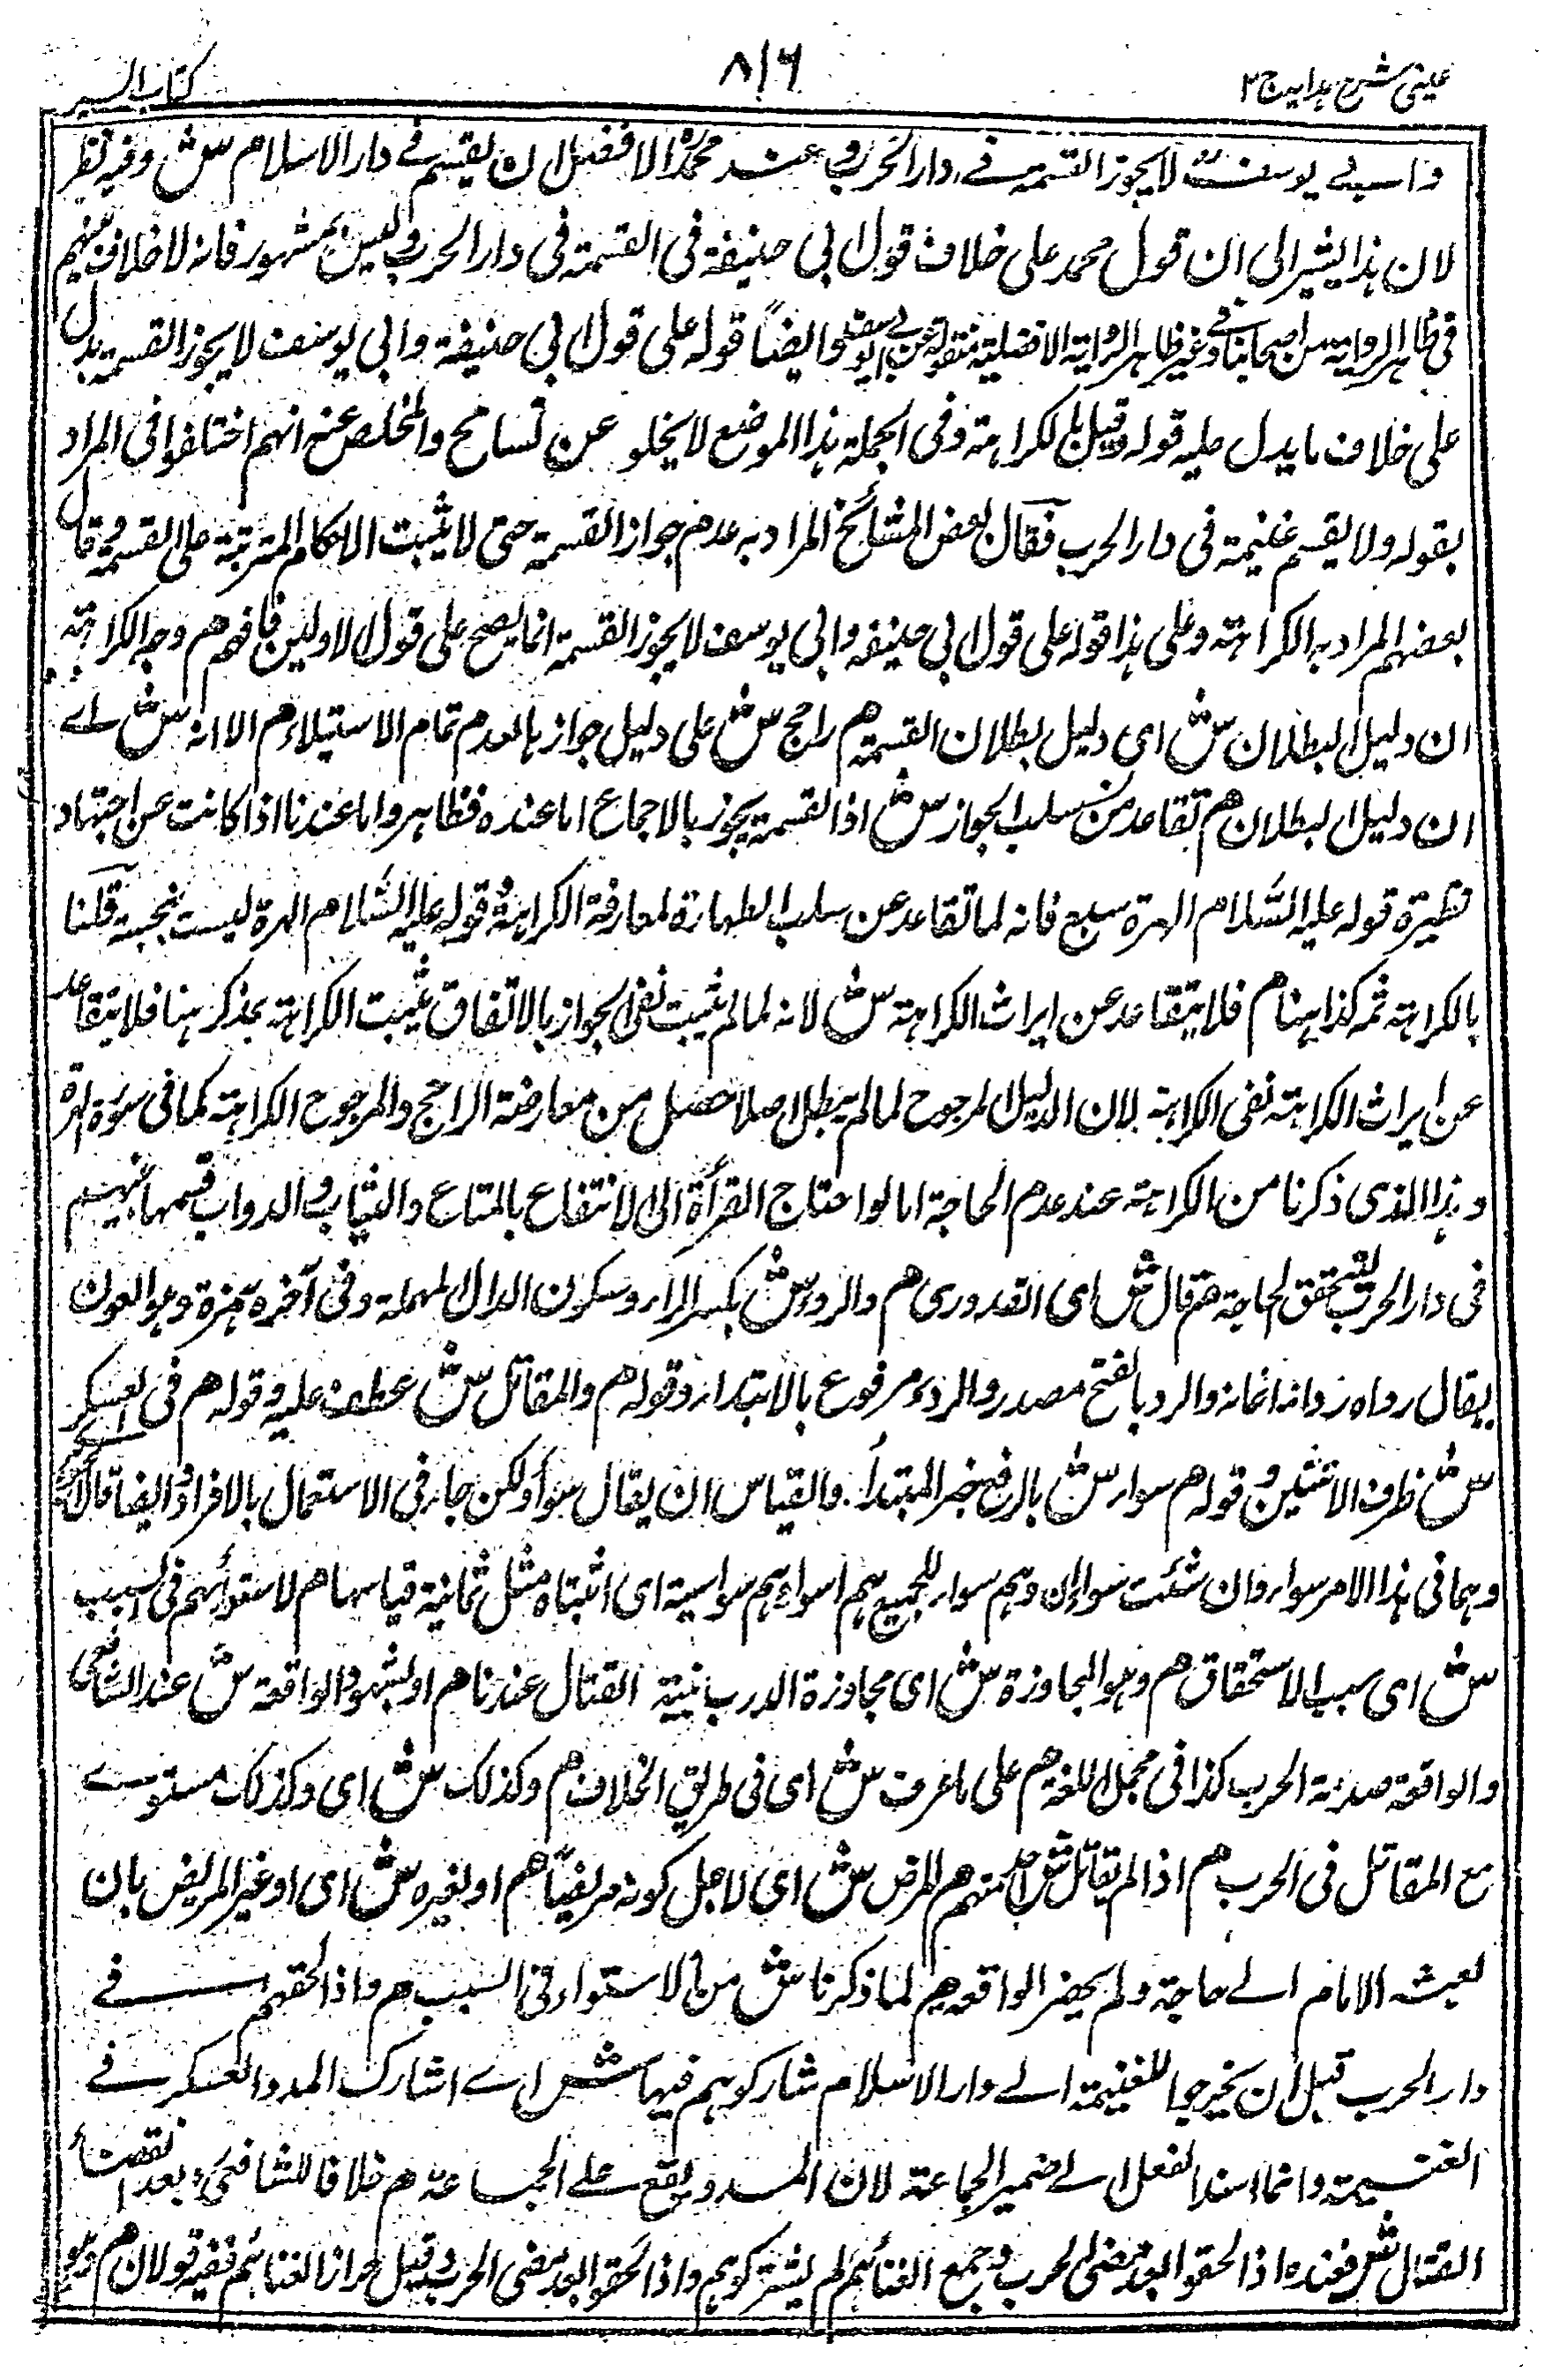 عینی شرح ہدایہ ج ۲
۸۱۶
کتاب السیر
وابی یوسفؒ لا یجوز القسمۃ فی دار الحرب وعند محمدؒ الافضل ان یقسم فی دار الاسلام ش وفیہ نظر
لان ہذا یشیر الی ان قول محمد علی خلاف قول ابی حنیفۃ فی القسمۃ فی دار الحرب ولیس بمشہور فانہ لا خلاف بینہم
فی ظاہر الروایۃ من اصحابنا وفی غیر ظاہر الروایۃ الافضلیۃ منقولۃ عن ابی یوسف وایضاً قولہ علی قول ابی حنیفۃ وابی یوسف لا یجوز القسمۃ یدل
علی خلاف ما یدل علیہ قولہ وقیل بالکراہتہ وفی الجملۃ ہذا الموضع لا یخلو عن تسامح والمخلص عنہ انہم اختلفوا فی المراد
بقولہ ولا یقسم غنیمۃ فی دار الحرب فقال بعض المشائخ المراد بہ عدم جواز القسمۃ حتی لا یثبت الاحکام المترتبۃ علی القسمۃ وقال
بعضہم المراد بہ الکراہتہ وعلی ہذا قولہ علی قول ابی حنیفہ وابی یوسف لا یجوز القسمۃ انما یصح علی قول الاولین فافہم م وجہ الکراہتہ
ان دلیل البطلان ش ای دلیل بطلان القسمۃ م راجح ش علی دلیل جوازہا لعدم تمام الاستیلاء م الا انہ ش اے
ان دلیل البطلان م تقاعد من سلب الجواز ش اذ القسمۃ یجوز بالاجماع اما عندہ فظاہر واما عندنا اذا کانت عن اجتہاد
نظیرۃ قولہ علیہ السّلام الہرۃ سبع فانہ لما تقاعد عن سلب الطہارۃ لمعارفۃ الکراہتہ قولہ علیہ السّلام الہرۃ لیست بنجسۃ قلنا
بالکراہتہ ثمہ کذا ہہنا م فلا یتقاعد عن ایراث الکراہتہ ش لانہ لما لم یثبت نفی الجواز بالاتفاق یثبت الکراہتہ بعد ذکر ہنا فلا یتقاعد
عن ایراث الکراہتہ نفی الکراہۃ لان الدلیل المرجوح لما لم یبطل اصلا حصل من معارضۃ الراجح والمرجوح الکراہتہ کما فی سورۃ الہرۃ
وہذا الذی ذکرنا من الکراہتہ عند عدم الحاجۃ اما لو احتاج القرأۃ الی الانتفاع بالمتاع والثیاب والدواب قسمہا بینہم
فی دار الحرب لتحقق الحاجۃ م قال ش ای القدوری م والردء ش بکسر الراء وسکون الدال المہملۃ وفی آخرہ ہمزۃ وہو العون
یقال رداہ ردانۃ اعانہ والرد بالفتح مصدر والردء مرفوع بالابتداء وقولہ م والمقاتل ش عطف علیہ وقولہ م فی العسکر
ش ظرف الاثنین وقولہ م سواء ش بالرفع خبر المبتدأ والقیاس ان یقال سواء ولکن جاء فی الاستعمال بالافراد ایضا
وہما فی ہذا الامر سواء وان شئت سواءان وہم سواء للجمیع ہم اسواء ہم سواسیۃ ای اشباہ مثل ثمانیۃ قیاسہا م لاستوائہم فی السبب
ش ای سبب الاستحقاق م وہو المجاوزۃ ش ای مجاوزۃ الدرب بنیۃ القتال عندنا م او شہود الواقعۃ ش عند الشافعی
والواقعۃ صدمۃ الحرب کذا فی مجمل اللغۃ م علی ما عرف ش ای فی طریق الخلاف م وکذلک ش ای وکذلک مستوے
مع المقاتل فی الحرب م اذا لم یقاتل ش منہم م لمرض ش ای لاجل کونہ مریضًا م او لغیرہ ش ای او غیر المریض بان
بعثہ الامام الے حاجۃ ولم یحضر الواقعۃ م لما ذکرنا ش من الاستواء فی السبب م واذا لحقہم فے
دار الحرب قبل ان یخرجوا الغنیمۃ الے دار الاسلام شارکوہم فیہا ش اے اشارک المدد العسکر فے
الغنیمۃ وانما اسند الفعل الے ضمیر الجماعۃ لان المدد یقع علے الجماعۃ م خلافا للشافعیؒ بعد انقضاء
القتال ش فعندہ اذا لحقوا بعد مضی الحرب وجمع الغنائم لم یشترکوہم واذا لحقوا بعد مضی الحرب وقبل احراز الغنائم ففیہ قولان م وہو